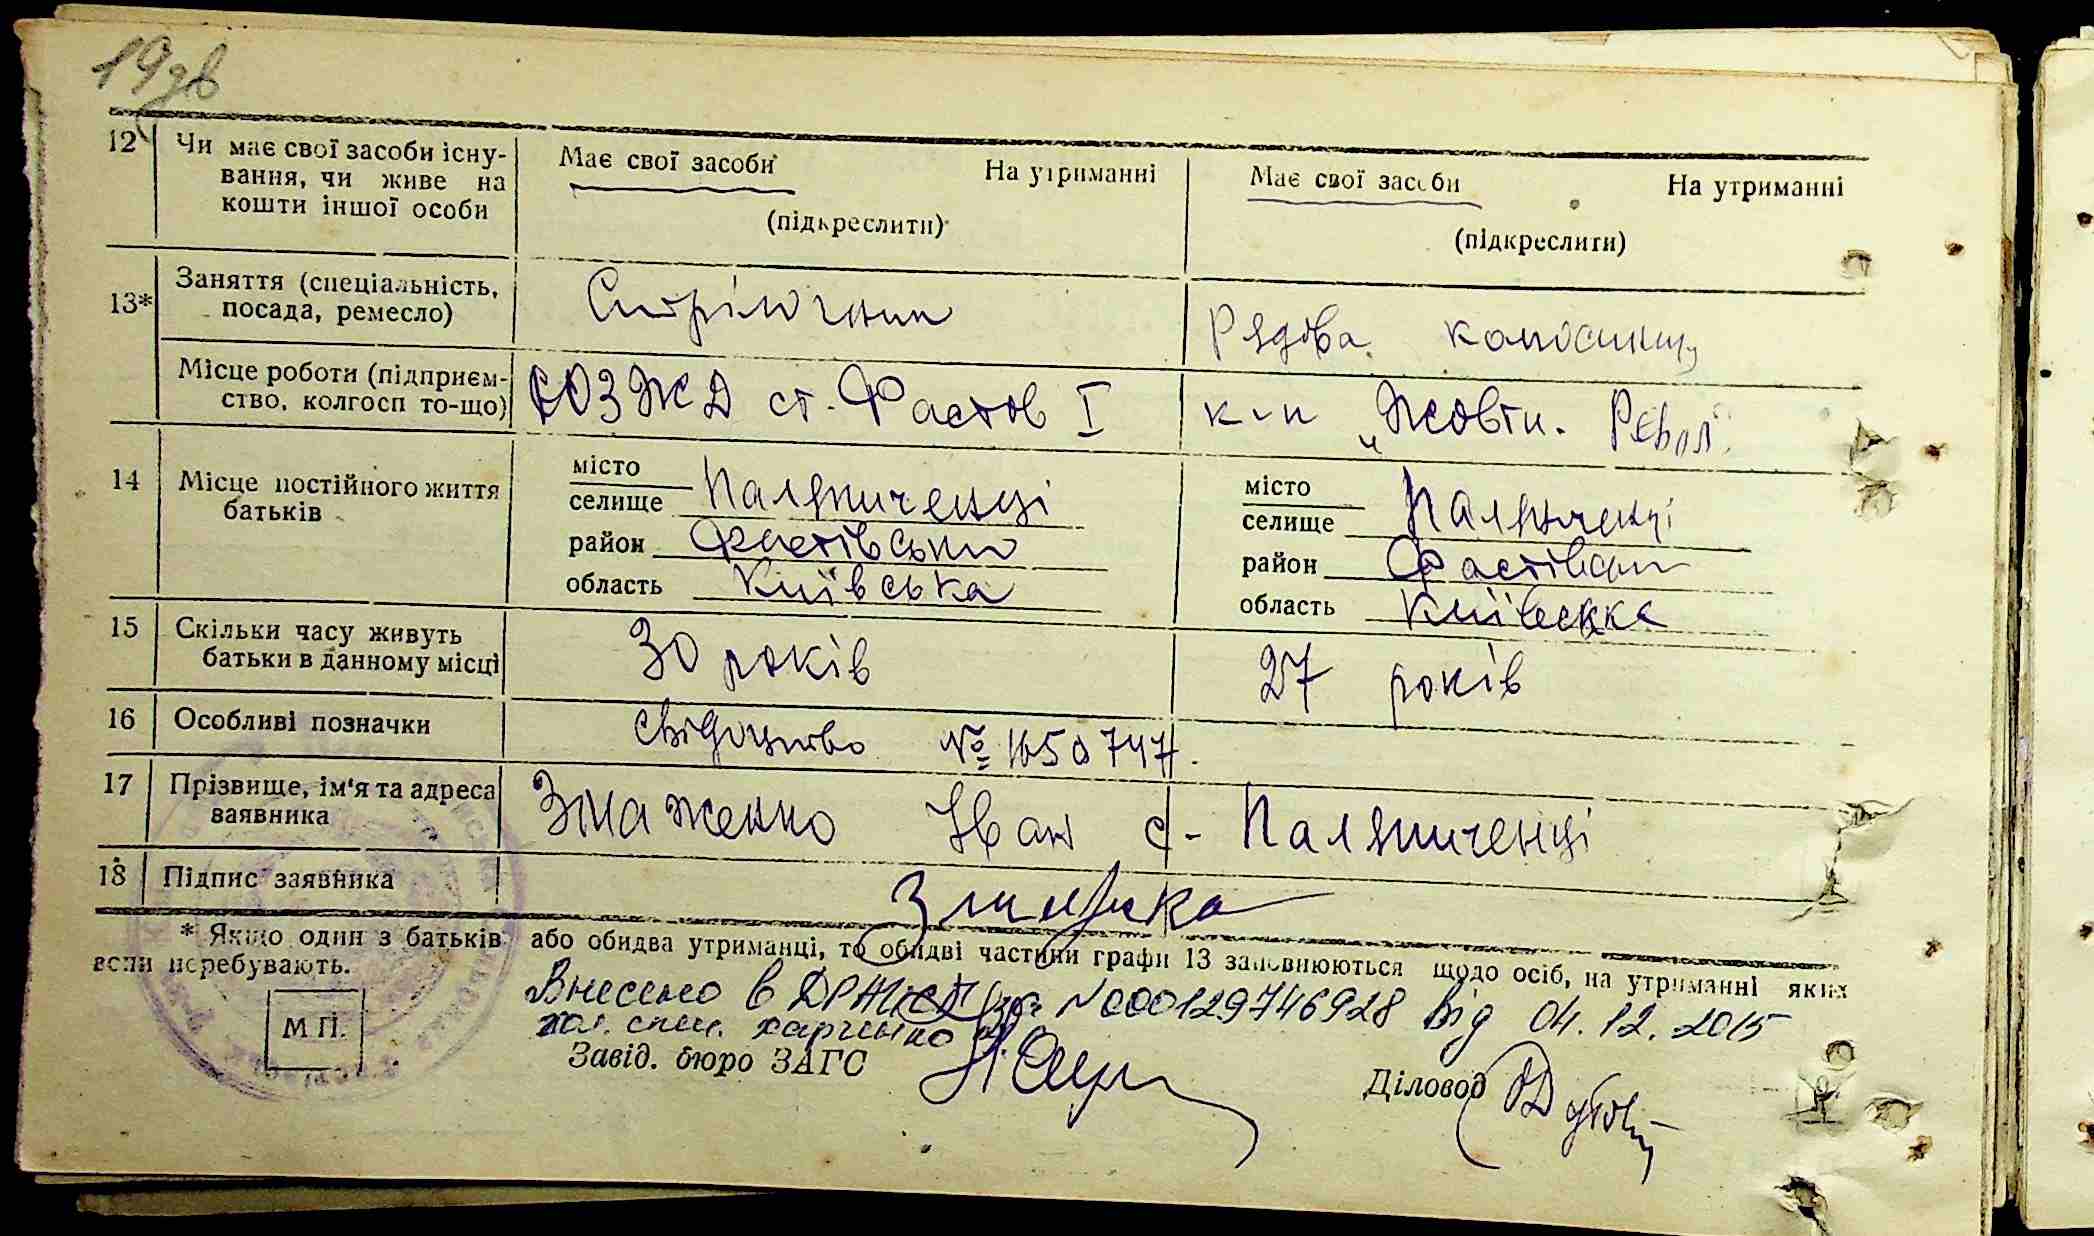 19зв
12 Чи має свої засоби існу- Має свої засоби На утриманні Має свої засоби На утриманні
вання, чи живе на
кошти іншої особи (підкреслити) (підкреслити)
13* Заняття (спеціальність, Стрілочник Рядова колгоспниця
посада, ремесло)
Місце роботи (підприєм- ЮЗЖД ст. Фастов I к-п „Жовтн. Револ"
ство, колгосп то-що)
14 Місце постійного життя місто Паляниченці місто Палянченці
батьків селище селище
район Фастівський район Фастівськ
область Київська область Київська
15 Скільки часу живуть 30 років 27 років
батьки в данному місці
16 Особливі позначки Свідоцтво № 1650747.
17 Прізвище, ім'я та адреса Іван с- Паляниченці
заявника
18 Підпис заявника
* Якщо один з батьків або обидва утриманці, то обидві частини графи 13 заповнюються щодо осіб, на утриманні яких
если перебувають.
Внесено в № 00129746928 від 04.12.2015
М П. спец. Харченко
Завід. бюро ЗАГС Діловод